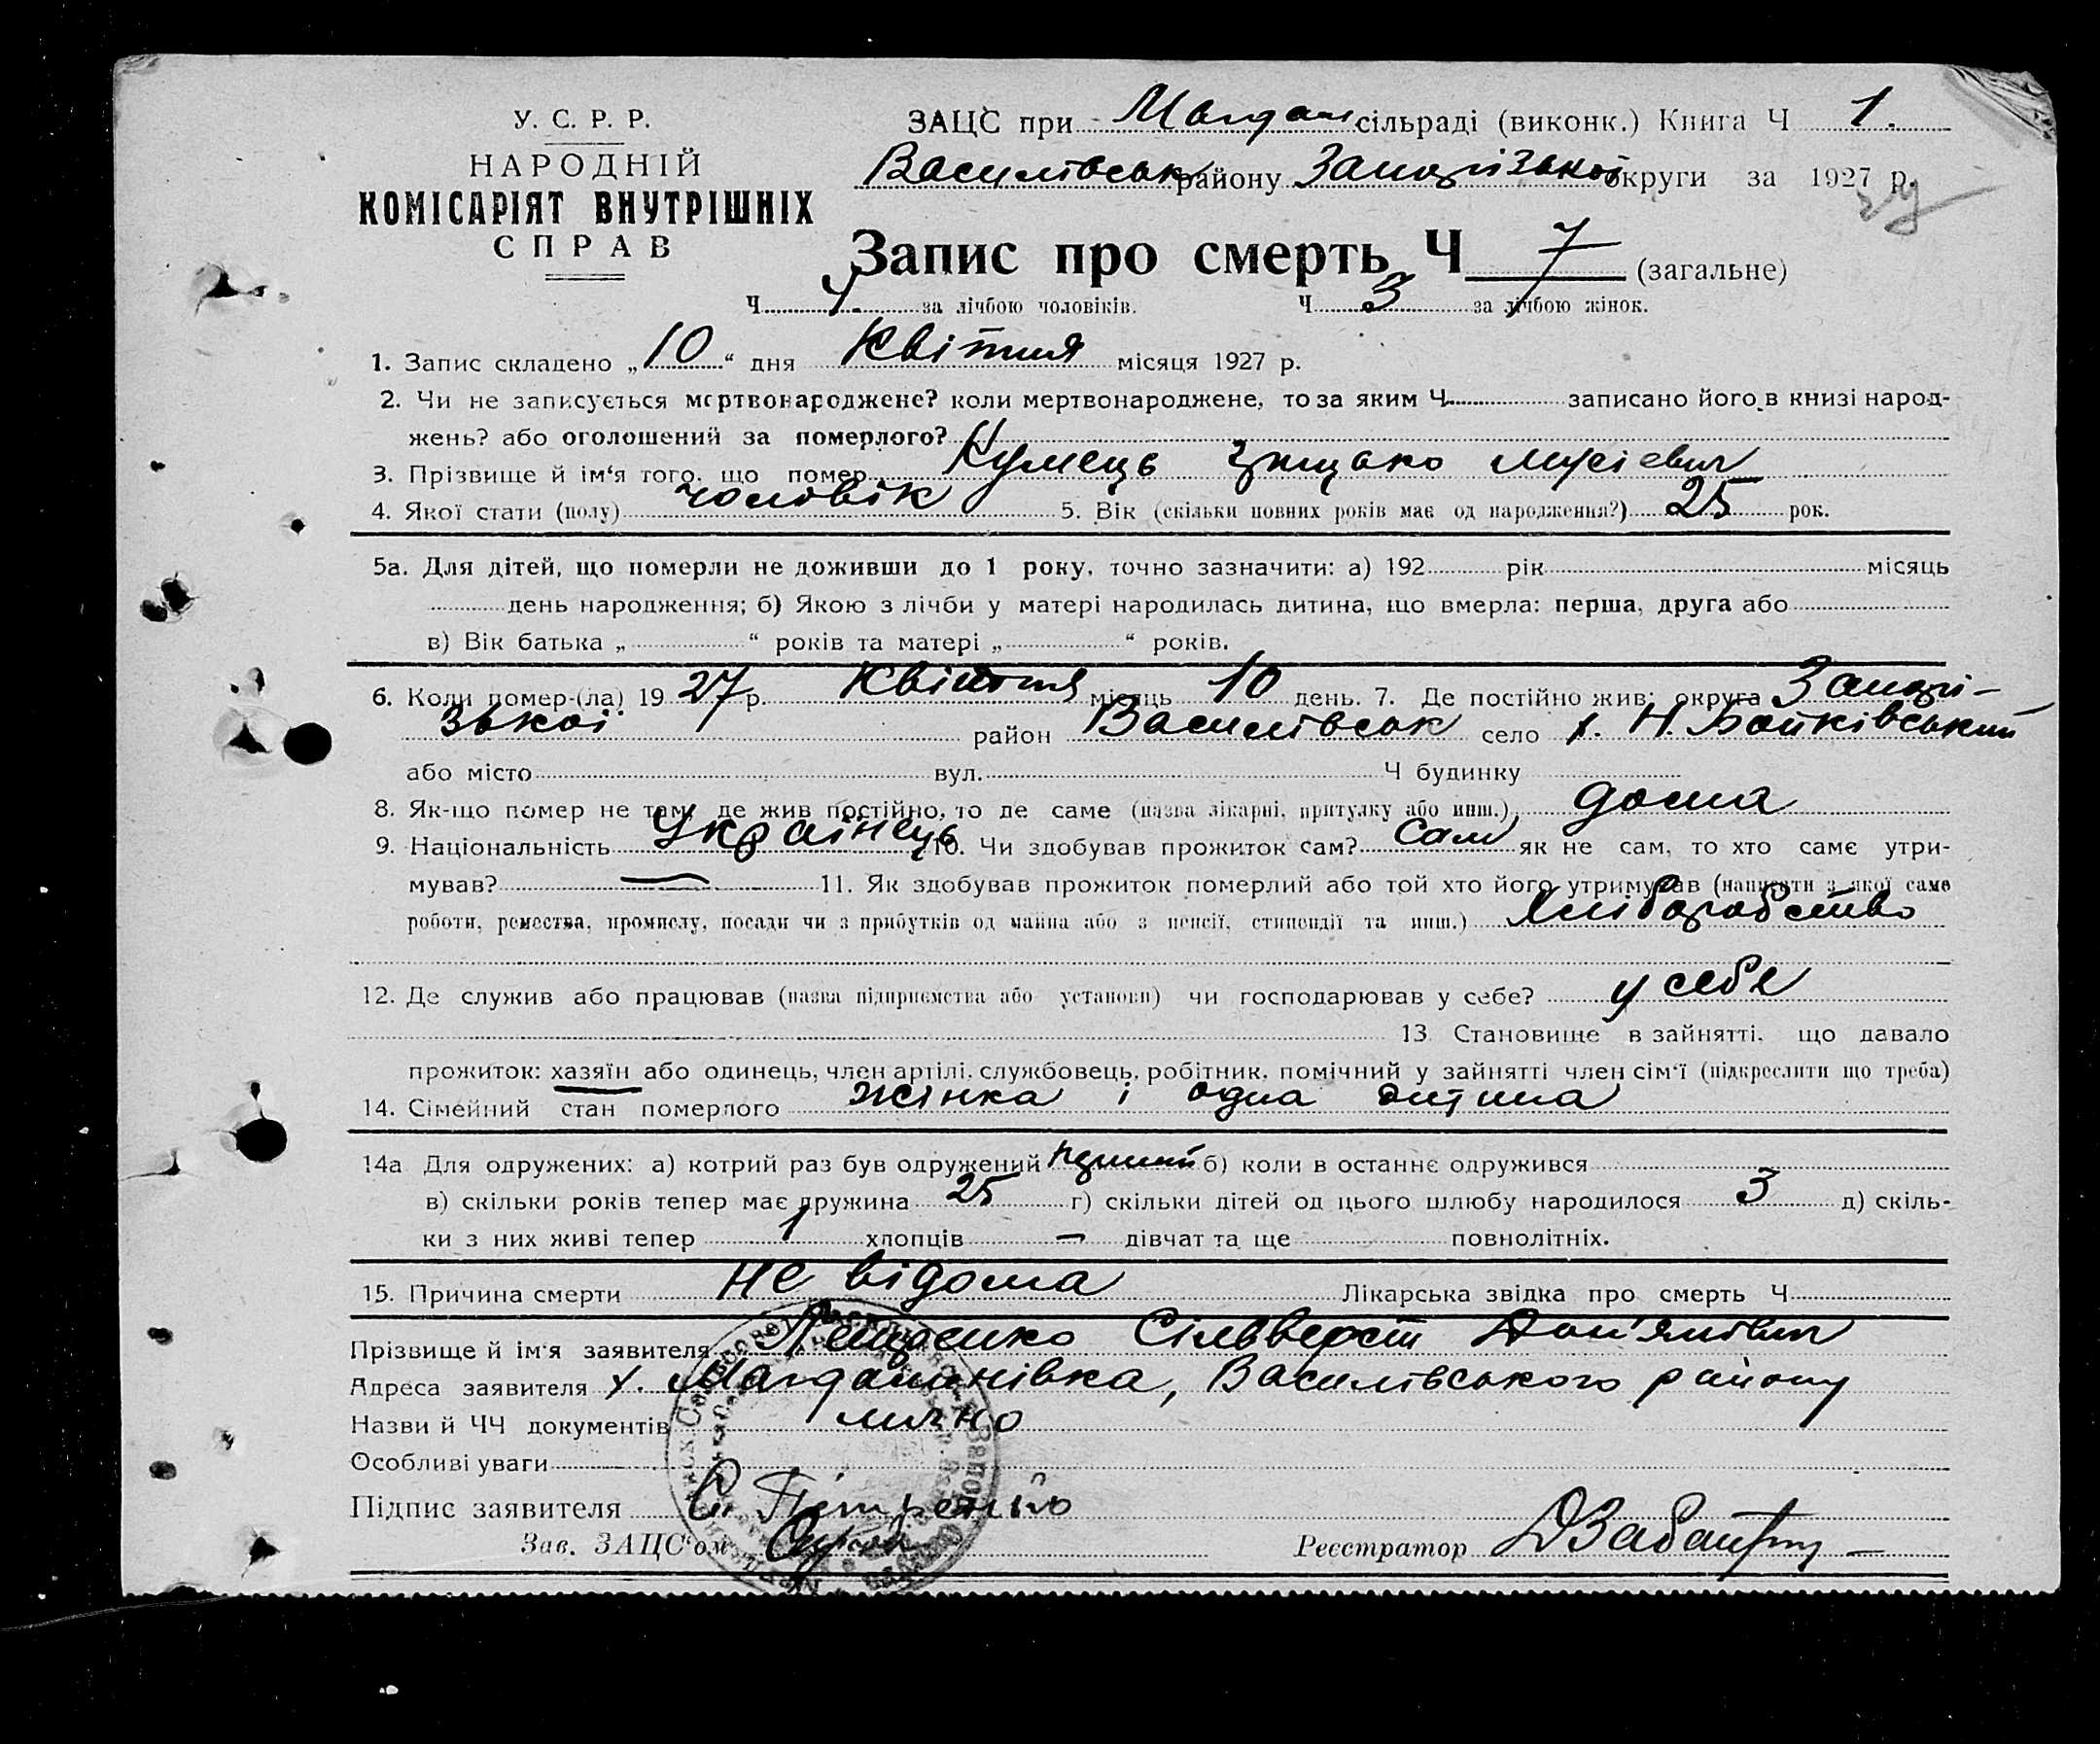 У. С. Р. Р.
НАРОДНІЙ
КОМІСАРІЯТ ВНУТРІШНІХ
СПРАВ
ЗАЦС при Магдал сільраді (виконк.) Книга Ч 1.
Василівськ району Запорізької округи за 1927 р.
Запис про смерть Ч 7 (загальне)
Ч 4 за лічбою чоловіків. Ч 3 за лічбою жінок.
1. Запис складено „10“ дня Квітня місяця 1927 р.
2. Чи не записується мертвонароджене? коли мертвонароджене, то за яким Ч записано його в книзі народ-
жень? або оголошений за померлого?
3. Прізвище й ім'я того, що помер Кумець Грицько Мусієвич
4. Якої стати (полу) чоловік 5. Вік (скільки повних років має од народження?) 25 рок.
5а. Для дітей, що померли не доживши до 1 року, точно зазначити: а) 192 рік місяць
день народження; б) Якою з лічби у матері народилась дитина, що вмерла: перша, друга або
в) Вік батька „ “ років та матері „ “ років.
6. Коли помер-(ла) 1927 р. Квітня місяць 10 день. 7. Де постійно жив: округа Запорі-
зької район Василівськ село х. Н.
або місто вул. Ч будинку
8. Як-що помер не там, де жив постійно, то де саме (назва лікарні, притулку або инш.) дома
9. Національність Українець 10. Чи здобував прожиток сам? Сам як не сам, то хто саме утри-
мував? — 11. Як здобував прожиток померлий або той хто його утримував (написати з якої саме
роботи, ремества, промислу, посади чи з прибутків од майна або з пенсії, стипендії та инш.) Хліборобство
12. Де служив або працював (назва підприємства або установи) чи господарював у себе? у себе
13. Становище в зайнятті, що давало
прожиток: хазяїн або одинець, член артілі, службовець, робітник, помічний у зайнятті член сім'ї (підкреслити що треба)
14. Сімейний стан померлого жінка і одна дитина
14а Для одружених: а) котрий раз був одружений б) коли в останнє одружився
в) скільки років тепер має дружина 25 г) скільки дітей од цього шлюбу народилося 3 д) скіль-
ки з них живі тепер 1 хлопців — дівчат та ще повнолітніх.
15. Причина смерти Не відома Лікарська звідка про смерть Ч
Прізвище й ім'я заявителя Сільверст
Адреса заявителя х. Магдалинівка, Василівського району
Назви й ЧЧ документів лично
Особливі уваги
Підпис заявителя С.
Зав. ЗАЦС'ом Реєстратор